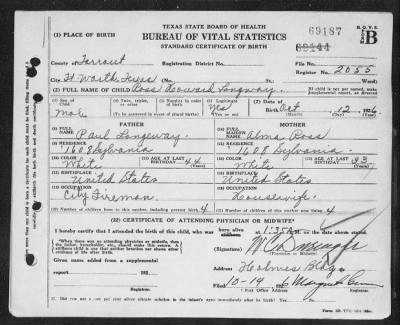 TEXAS STATE BOARD OF HEALTH
BUREAU OF VITAL STATISTICS
STANDARD CERTIFICATE OF BIRTH
69187
B.O.V.S.
B
(1) PLACE OF BIRTH
County of Tarrant Registration District No. File No. 69144
City Ft Worth, Texas No. St. Register No. 2055
(2) FULL NAME OF CHILD Ross Howard Longway
(3) Sex of Child Male (4) Twin, triplet, or other (5) Number in order of birth (6) Legitimate? Yes (7) Date of birth Oct 12 1926
(To be answered in event of plural births)
FATHER MOTHER
FULL NAME Paul Longway FULL NAME Alma Ross
RESIDENCE 1608 Sylvania RESIDENCE 1608 Sylvania
COLOR White AGE AT LAST BIRTHDAY 44 (Years) COLOR White AGE AT LAST BIRTHDAY 33 (Years)
BIRTHPLACE United States BIRTHPLACE United States
OCCUPATION City Fireman OCCUPATION Housewife
Number of children born to this mother, including present birth 4 Number of children of this mother now living 4
(22) CERTIFICATE OF ATTENDING PHYSICIAN OR MIDWIFE*
I hereby certify that I attended the birth of this child, who was born alive at 1:35 A M.
stillborn
*When there was no attending physician or midwife, then the father, householder, etc., should make this return. A stillborn child is one that neither breathes nor shows other evidence of life after birth.
(Signature)
(Physician or Midwife)
Given name added from a supplemental report 192
Address Holmes Bldg
Filed 10-19 1926
Registrar
Post Office Address